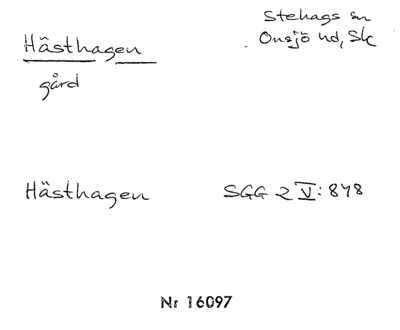 Stehags sn
Hästhagen
Onsjö hd, Sk
gård
Hästhagen SGG 2 V: 848
Nr 16097